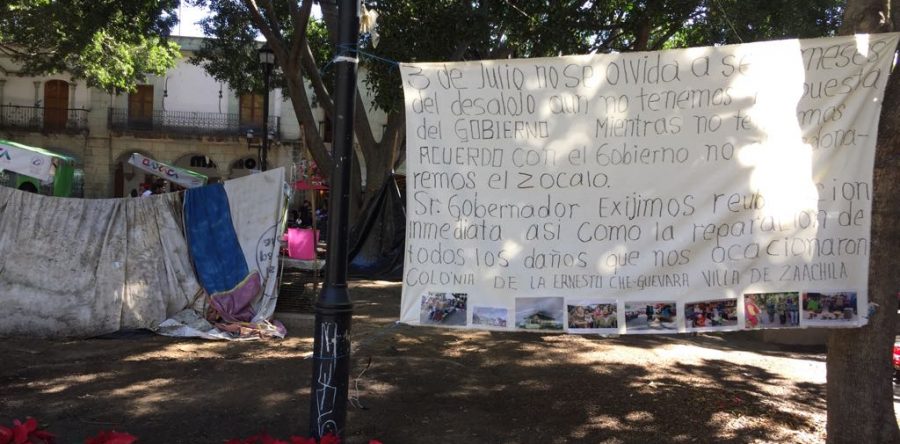 OAXACA
3 De Julio no se olvida a meses
del desalojo aun no tenemos
del GOBIERNO Mientras no
ACUERDO con el Gobierno no
remos el zocalo.
Sr. Gobernador Exijimos
inmediata asi como la reparacion de
todos los daños que nos ocacionaron
COLONIA DE LA ERNESTO CHE-GUEVARA VILLA DE ZAACHILA